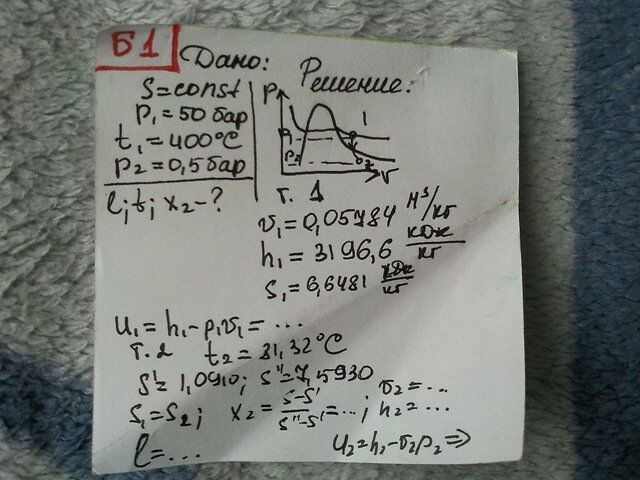 Б1 Дано: Решение:
S=const
P₁=50 бар
t₁=400°C
P₂=0,5 бар
l; t; x₂-?
P
1
P₁
P₂
2
v
т. 1
v₁=0,05784 м³/кг
h₁=3196,6 кДж/кг
s₁=6,6481 кДж/кг
u₁=h₁-p₁v₁=...
т. 2 t₂=81,32°C
s'=1,0910; s''=7,5930
s₁=s₂; x₂=(s-s')/(s''-s')=...; v₂=... h₂=...
l=... u₂=h₂-v₂p₂⇒